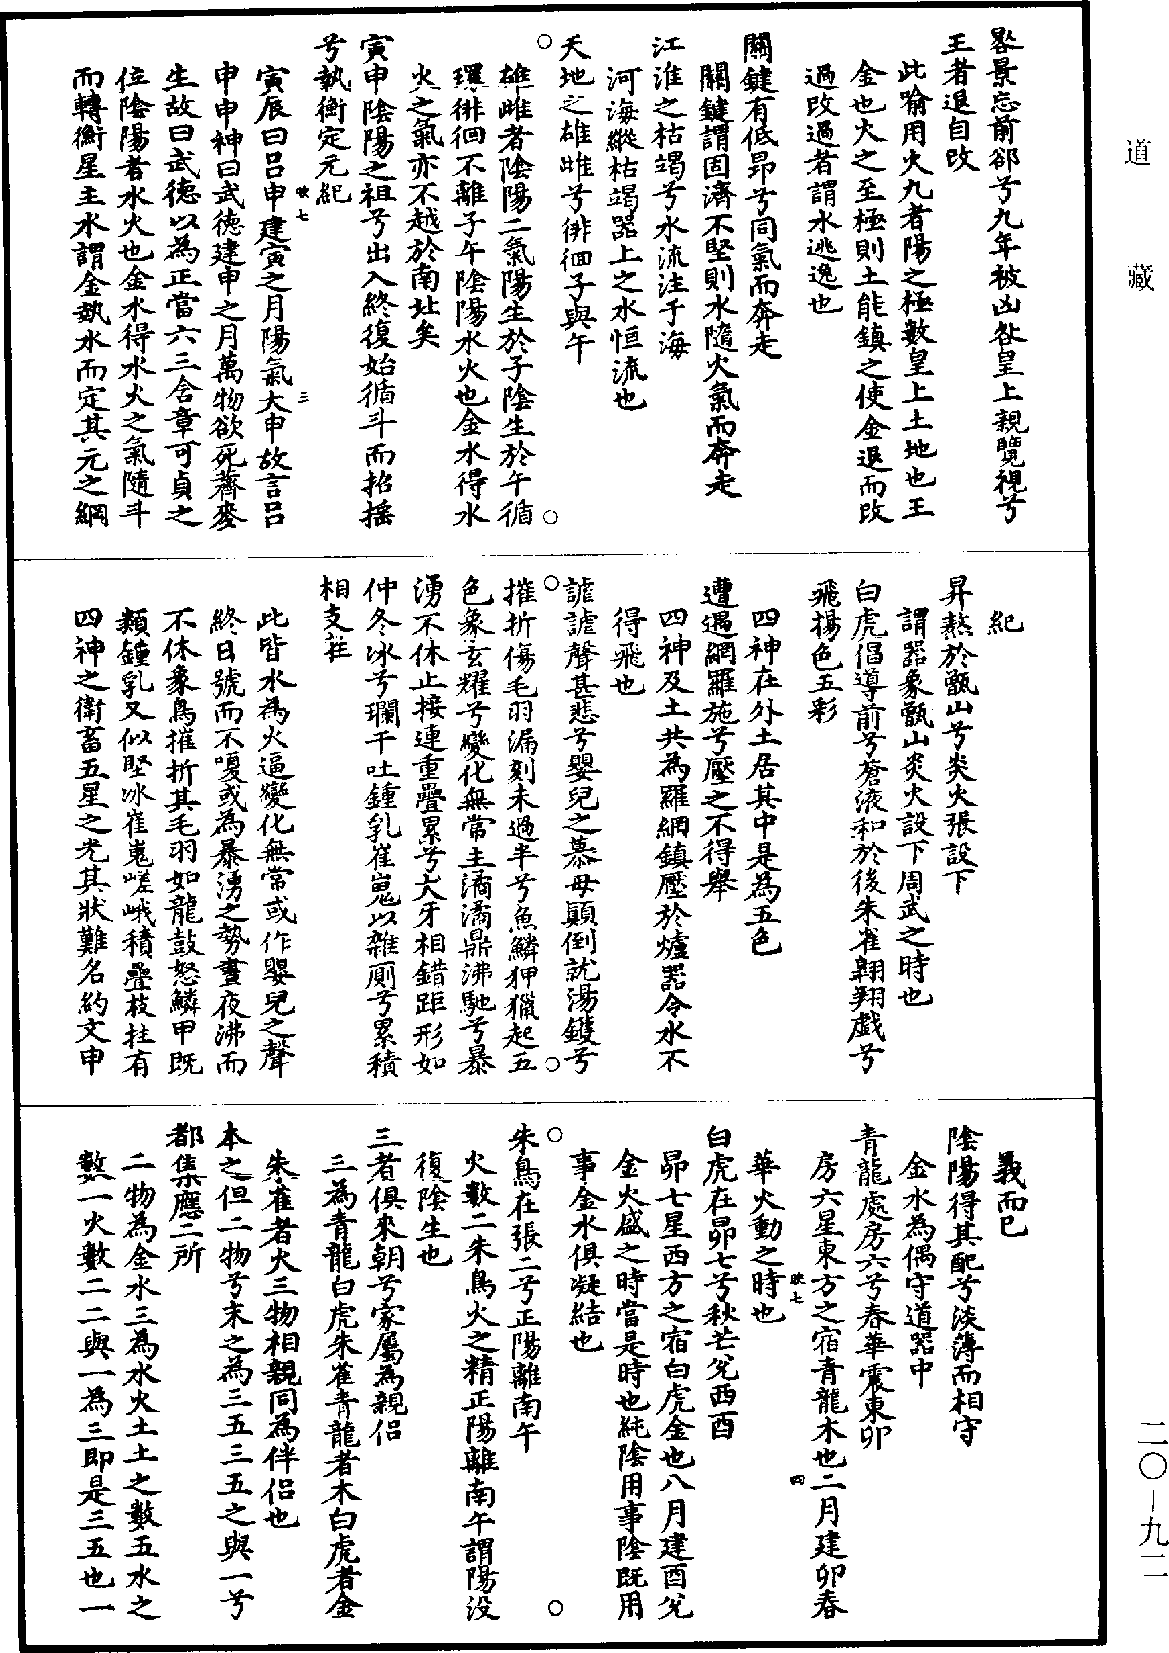 道藏
晷景忘前卻兮九年被凶咎皇上親覽視兮
王者退自改
此喻用火九者陽之極數皇上土地也王
金也火之至極則土能鎮之使金退而改
過改過者謂水逃逸也
關鍵有低昂兮同氣而奔走
關鍵謂固濟不堅則水隨火氣而奔走
江淮之枯竭兮水流注于海
河海縱枯竭器上之水恒流也
天地之雄雌兮徘徊子與午
雄雌者陰陽二氣陽生於子陰生於午循
環徘徊不離子午陰陽水火也金水得水
火之氣亦不越於南北矣
寅申陰陽之祖兮出入終復始循斗而招搖
兮執衡定元紀
映七 三
寅辰曰呂申建寅之月陽氣大申故言呂
申申神曰武德建申之月萬物欲死薺麥
生故曰武德以為正當六三含章可貞之
位陰陽者水火也金水得水火之氣隨斗
而轉衡星主水謂金執水而定其元之綱
紀
昇熬於甑山兮炎火張設下
謂器象甑山炎火設下周武之時也
白虎倡導前兮蒼液和於後朱雀翱翔戲兮
飛揚色五彩
四神在外土居其中是為五色
遭遇網羅施兮壓之不得舉
四神及土共為羅網鎮壓於爐器令水不
得飛也
謔謔聲甚悲兮嬰兒之慕母顛倒就湯鑊兮
摧折傷毛羽漏刻未過半兮魚鱗狎獵起五
色象玄耀兮變化無常主潏潏鼎沸馳兮暴
湧不休止接連重疊累兮犬牙相錯距形如
仲冬冰兮瓓干吐鍾乳崔嵬以雜廁兮累積
相支拄
此皆水為火逼變化無常或作嬰兒之聲
終日號而不嗄或為暴湧之勢晝夜沸而
不休象鳥摧折其毛羽如龍鼓怒鱗甲既
類鍾乳又似堅冰崔嵬嵯峨積疊枝拄有
四神之衛畜五星之光其狀難名約文申
義而已
陰陽得其配兮淡薄而相守
金水為偶守道器中
青龍處房六兮春華震東卯
房六星東方之宿青龍木也二月建卯春
華火動之時也
映七 四
白虎在昴七兮秋芒兌西酉
昴七星西方之宿白虎金也八月建酉兌
金火盛之時當是時也純陰用事陰既用
事金水俱凝結也
朱鳥在張二兮正陽離南午
火數二朱鳥火之精正陽離南午謂陽沒
復陰生也
三者俱來朝兮家屬為親侶
三為青龍白虎朱雀青龍者木白虎者金
朱雀者火三物相親同為伴侶也
本之但二物兮末之為三五三五之與一兮
都集應二所
二物為金水三為水火土土之數五水之
數一火數二二與一為三即是三五也一
二〇-九二